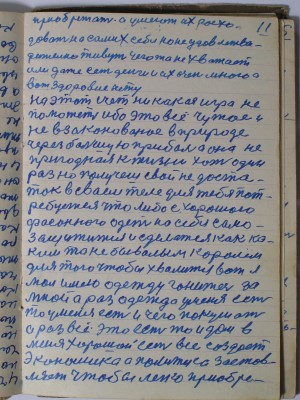 11
приобретать а умеют их расхо-
довать на самих себя но неудовлетва-
рительно живут чего то не хватает
или даже есть деньги и их очень много а
вот здоровие нету
на этот счет никакая игра не
поможет ибо это всё чужое и
не взаконованое в природе
через бачишую прибал она не
пригодная к жизни хоть один
раз но получеш свой не доста-
ток в своем теле для тебя пот-
ребуется что либо с хорошого
фасонного одеть на себя само-
защитится и сделается как ка-
ким то небывалым королем
для того чтобы хвалится вот я
мол имею одежду гонится за
мной а раз одежда у меня есть
то у меня есть и чего покушать
а раз всё это есть то и дом в
меня хороший есть все создает
экономика а политика застов-
ляет чтобы легко приобре-